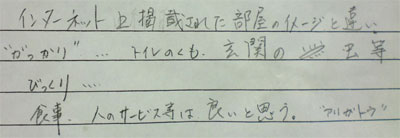 インターネット上掲載された部屋のイメージと違い
"がっかり" … トイレのくも、玄関の 虫等
びっくり …
食事、人のサービス等は良いと思う。"アリガトウ"